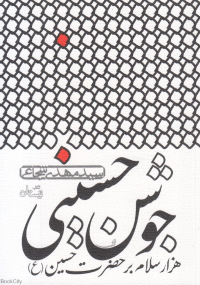 سید مهدی شجاعی
جوشن حسینی
هزار سلام بر حضرت حسین (ع)
BookCity